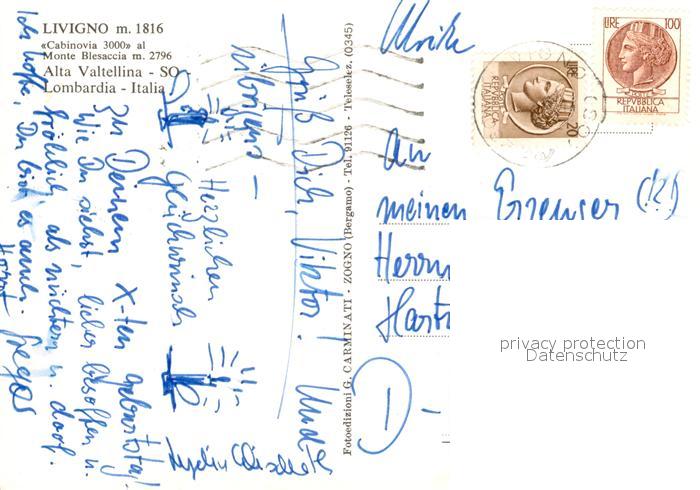 LIVIGNO m. 1816
«Cabinovia 3000» al
Monte Blesaccia m. 2796
Alta Valtellina - SO
Lombardia - Italia
Fotoedizioni G. CARMINATI - ZOGNO (Bergamo) - Tel. 91126 - Teleselez. (0345)
Grüß Dich, Viktor!
übrigens -
Herzlichen
Glückwunsch
zu Deinem X-ten Geburtstag!
Wie Du siehst, lieber besoffen u.
fröhlich als nüchtern u. doof.
Ich hoffe, Du bist es auch.
Horst
Ulrike
LIRE 100
REPVBBLICA
ITALIANA
LIRE 20
REPVBBLICA
ITALIANA
An
meinen
Herrn
D-
privacy protection
Datenschutz